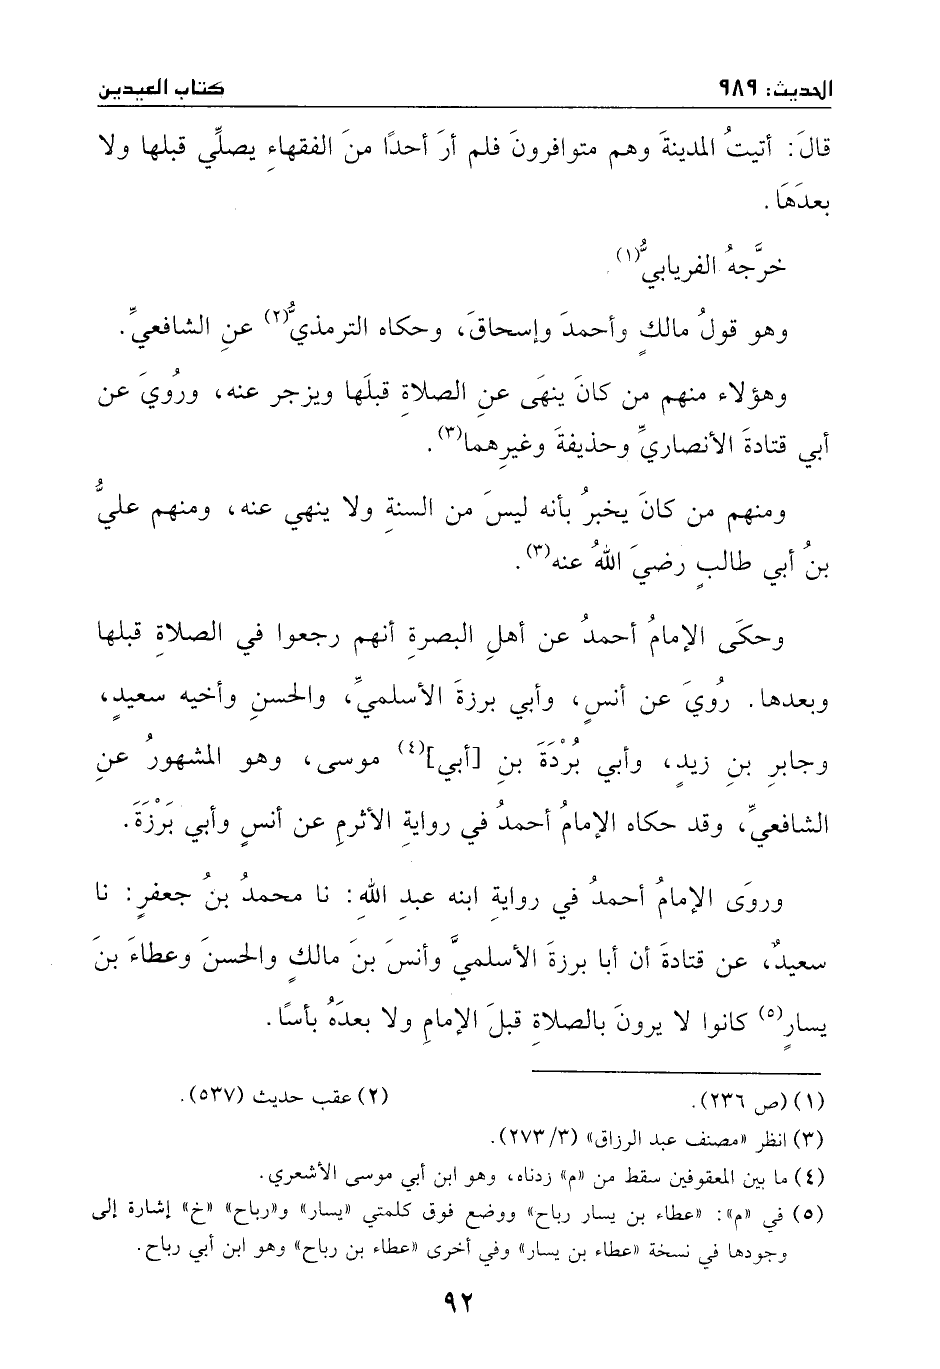 الحديث: ٩٨٩
كتاب العيدين
قالَ: أتيتُ المدينةَ وهم متوافرونَ فلم أرَ أحدًا منَ الفقهاءِ يصلِّي قبلها ولا
بعدَهَا.
خرَّجهُ الفريابيُّ(١).
وهو قولُ مالكٍ وأحمدَ وإسحاقَ، وحكاه الترمذيُّ(٢) عنِ الشافعيِّ.
وهؤلاء منهم من كانَ ينهَى عنِ الصلاةِ قبلَها ويزجر عنه، ورُويَ عن
أبي قتادةَ الأنصاريِّ وحذيفةَ وغيرِهما(٣).
ومنهم من كانَ يخبرُ بأنه ليسَ من السنةِ ولا ينهي عنه، ومنهم عليُّ
بنُ أبي طالبٍ رضيَ اللهُ عنه(٣).
وحكَى الإمامُ أحمدُ عن أهلِ البصرةِ أنهم رجعوا في الصلاةِ قبلها
وبعدها. رُويَ عن أنسٍ، وأبي برزةَ الأسلميِّ، والحسنِ وأخيه سعيدٍ،
وجابرِ بنِ زيدٍ، وأبي بُرْدَةَ بنِ [أبي](٤) موسى، وهو المشهورُ عنِ
الشافعيِّ، وقد حكاه الإمامُ أحمدُ في روايةِ الأثرمِ عن أنسٍ وأبي بَرْزَةَ.
وروَى الإمامُ أحمدُ في روايةِ ابنه عبدِ اللهِ: نا محمدُ بنُ جعفرٍ: نا
سعيدٌ، عن قتادةَ أن أبا برزةَ الأسلميَّ وأنسَ بنَ مالكٍ والحسنَ وعطاءَ بنَ
يسارٍ(٥) كانوا لا يرونَ بالصلاةِ قبلَ الإمامِ ولا بعدَهُ بأسًا.
(١) (ص ٢٣٦).
(٢) عقب حديث (٥٣٧).
(٣) انظر «مصنف عبد الرزاق» (٣/ ٢٧٣).
(٤) ما بين المعقوفين سقط من «م» زدناه، وهو ابن أبي موسى الأشعري.
(٥) في «م»: «عطاء بن يسار رباح» ووضع فوق كلمتي «يسار» و«رباح» «خ» إشارة إلى
وجودها في نسخة «عطاء بن يسار» وفي أخرى «عطاء بن رباح» وهو ابن أبي رباح.
٩٢